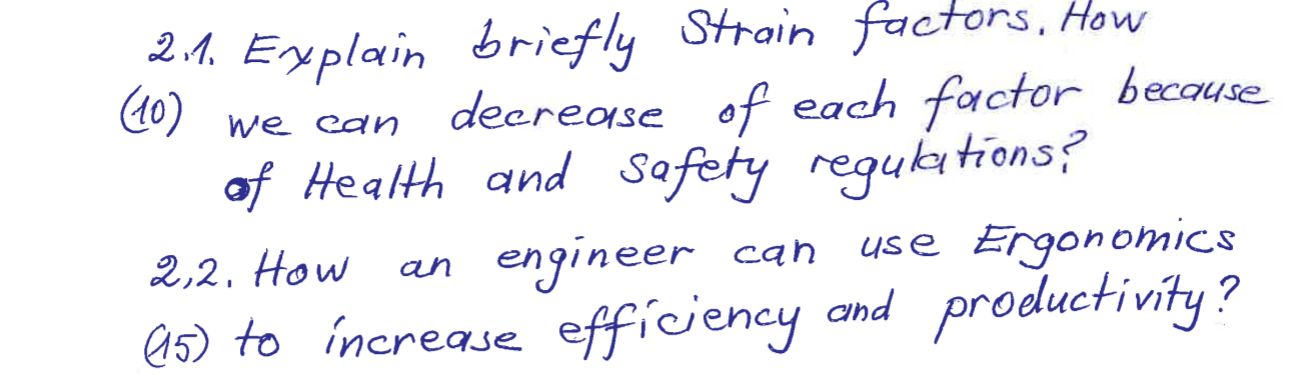 2.1. Explain briefly Strain factors. How
(10) we can decrease of each factor because
of Health and Safety regulations?
2,2. How an engineer can use Ergonomics
(15) to increase efficiency and productivity?